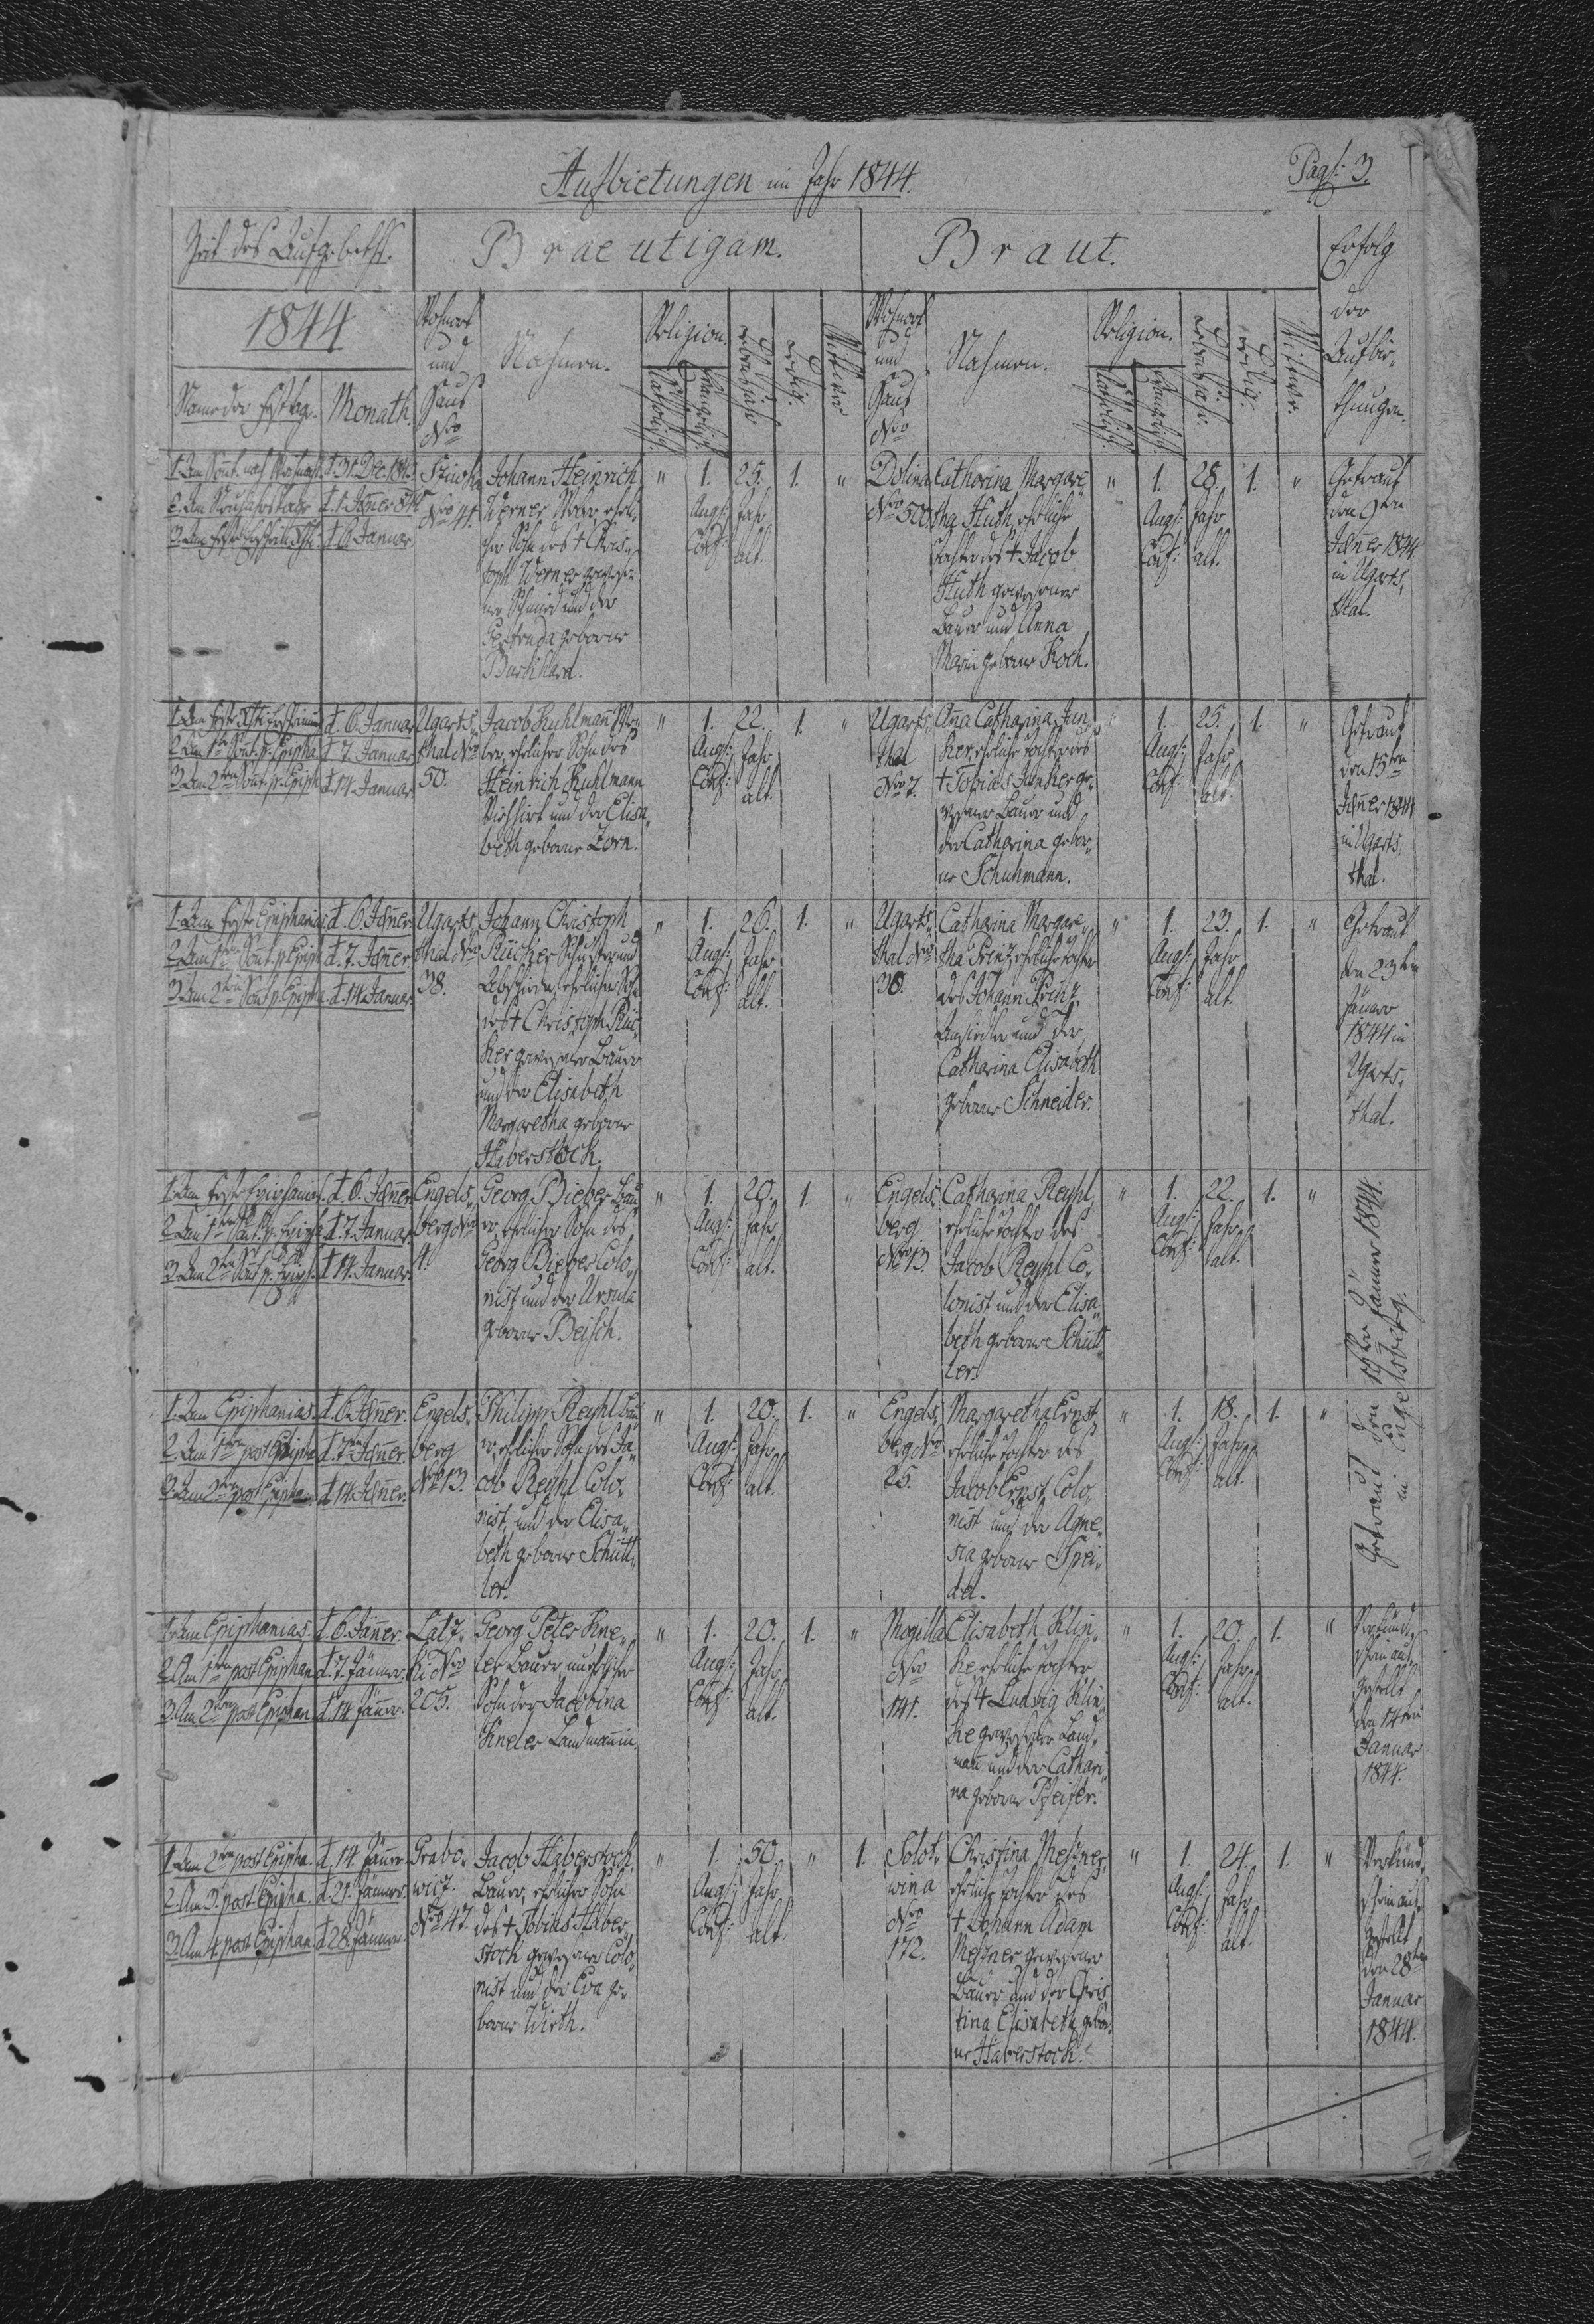 Aufbietungen im Jahr 1844.
Pag: 3.
Zeit des Aufgeboths.
Braeutigam.
Braut.
Erfolg
der
Aufbie-
thungen.
1844
Name der Festtage.
Monath.
Wohnort
und
Haus
Nro
Nahmen.
Religion.
Catolisch
Evangelisch
Lebensjahr
Ledig.
Wittwer
Wohnort
und
Haus
Nro
Nahmen.
Religion.
Catolisch
Evangelisch
Lebensjahr
Ledig.
Wittwe.
1. Am Sont. nach Weihnacht
2. Am Neujahrstage
3. Am Feste
d. 31. Dec. 1843
d. 1. Jäner 844
d. 6. Januar.
Nro 41.
Johann Heinrich
Werner ehrli-
cher Sohn des † Chris-
toph Werner gewese-
ner Schmied und der
Gertruda geborne
Burkhard.
"
1.
Augs:
Conf:
25.
Jahr
alt.
1.
"
Dolina
Nro 500
Catharina Margare-
tha Huth, ehrliche
Tochter des † Jacob
Huth gewesener
Bauer und Anna
Maria geborne Koch.
"
1.
Augs:
Conf:
28.
Jahr
alt.
1.
"
Getraut
den 9ten
Jäner 1844
in Ugarts-
thal.
1. Am Feste
2. Am 1ten Sont. p. Epipha
3. Am 2ten Sont. p. Epiph
d. 6. Januar
d. 7. Januar
d. 14. Januar
Ugarts-
thal Nro
50.
Jacob Kuhlman
ehrlicher Sohn des
Heinrich Kuhlmann
Viehhirt und der Elisa-
beth geborne Zorn.
"
1.
Augs:
Conf:
22.
Jahr
alt.
1.
"
Ugarts-
thal
Nro 7.
Aña Catharina Jun-
ker, ehrliche Tochter des
† Tobias Junker ge-
wesener Bauer und
der Catharina gebor-
ne Schuhmann.
"
1.
Augs:
Conf:
25.
Jahr
alt.
1.
"
Getraut
den 15ten
Jäner 1844
in Ugarts-
thal.
1. Am Feste Epiphanias
2. Am 1ten Sont. p. Epiph
3. Am 2ten Sont. p. Epipha
d. 6. Jäner.
d. 7. Jäner.
d. 14. Januar
Ugarts-
thal Nro
38.
Johann Christoph
Rücker Schuster und
ehrlicher Sohn
des † Christoph Rüc-
ker gewesener Bauer
und der Elisabeth
Margaretha geborne
Haberstock.
"
1.
Augs:
Conf:
26.
Jahr
alt.
1.
"
Ugarts-
thal Nro
30.
Catharina Margare-
tha Prinz, ehrliche Tochter
des Johann Prinz
Ansiedler und der
Catharina Elisabeth
geborne Schneider.
"
1.
Augs:
Conf:
23.
Jahr
alt.
1.
"
Getraut
den 23ten
Jänner
1844 in
Ugarts-
thal.
1. Am Feste Epiphanias.
2. Am 1ten Sont. p. Epiph
3. Am 2ten Sont. p. Epiph.
d. 6. Jäner
d. 7. Januar
d. 14. Januar.
Engels-
berg Nro
4.
Georg Bieber Bau-
er, ehrlicher Sohn des
Georg Bieber Colo-
nist und der Ursula
geborne Beisch.
"
1.
Augs:
Conf:
20.
Jahr
alt.
1.
"
Engels-
berg
Nro 13.
Catharina Reyhl,
ehrliche Tochter des
Jacob Reyhl Co-
lonist und der Elisa-
beth geborne Schütt-
ler.
"
1.
Augs:
Conf:
22.
Jahr
alt.
1.
"
Getraut den Jänner 1844.
in Engelsberg.
1. Am Epiphanias.
2. Am 1ten post Epipha
3. Am 2ten post Epiphan
d. 6. Jäner.
d. 7. Jäner.
d. 14. Jäner.
Engels-
berg
Nro 13.
Philipp Reyhl Bau-
er, ehrlicher Sohn des Ja-
cob Reyhl Colo-
nist, und der Elisa-
beth geborne Schütt-
ler.
"
1.
Augs:
Conf:
20.
Jahr
alt.
1.
"
Engels-
berg Nro
25.
Margaretha Ernst,
ehrliche Tochter des
Jacob Ernst, Colo-
nist und der Agne-
sia geborne Spei-
del.
"
1.
Augs:
Conf:
18.
Jahr
alt.
1.
"
1. Am Epiphanias.
2. Am 1ten post Epiphan
3. Am 2ten post Epiphan
d. 6. Jäner.
d. 7. Jänner.
d. 14. Jäner.
Latz-
ki Nro
205.
Georg Peter Kne-
ler Bauer, unehlicher
Sohn der Jacobina
Kneler Landmannin.
"
1.
Augs:
Conf:
20.
Jahr
alt.
1.
"
Mogilla
Nro
141.
Elisabeth Klin-
ke ehrliche Tochter
des † Ludwig Klin-
ke gewesener Land-
mañ und der Cathari-
na geborne Pfeifer.
"
1.
Augs:
Conf:
20.
Jahr
alt.
1.
"
Verkünd-
schein aus-
gestellt
den 14ten
Januar
1844.
1. Am 2ten post Epipha.
2. Am 3. post Epipha.
3. Am 4. post Epiphan
d. 14. Jäner.
d. 21. Jänner.
d. 28. Jänner.
Grabo-
wicz.
Nro 47.
Jacob Haberstock,
Bauer, ehrlicher Sohn
des † Tobias Haber-
stock gewesener Colo-
nist und der Eva ge-
borne Wirth.
"
1.
Augs:
Conf:
50.
Jahr
alt.
"
1.
Solot-
wina
Nro
172.
Christina Meßner,
ehrliche Tochter des
† Johann Adam
Meßner gewesener
Bauer und der Chris-
tina Elisabeth gebor-
ne Haberstock.
"
1.
Augs:
Conf:
24.
Jahr
alt.
1.
"
Verkünd-
schein aus-
gestellt
den 28ten
Januar
1844.